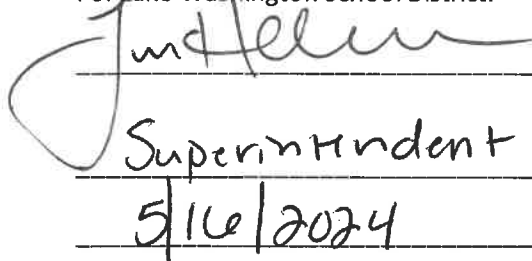 For Lake Washington School District:
Superintendent
5/16/2024